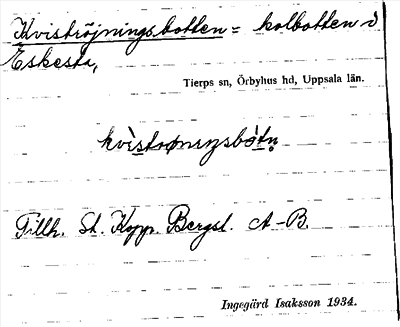 Kviströjningsbotten = kolbotten i
Eskesta,
Tierps sn, Örbyhus hd, Uppsala län.
Tillh. St. Kopp. Bergsl. A-B.
Ingegärd Isaksson 1934.